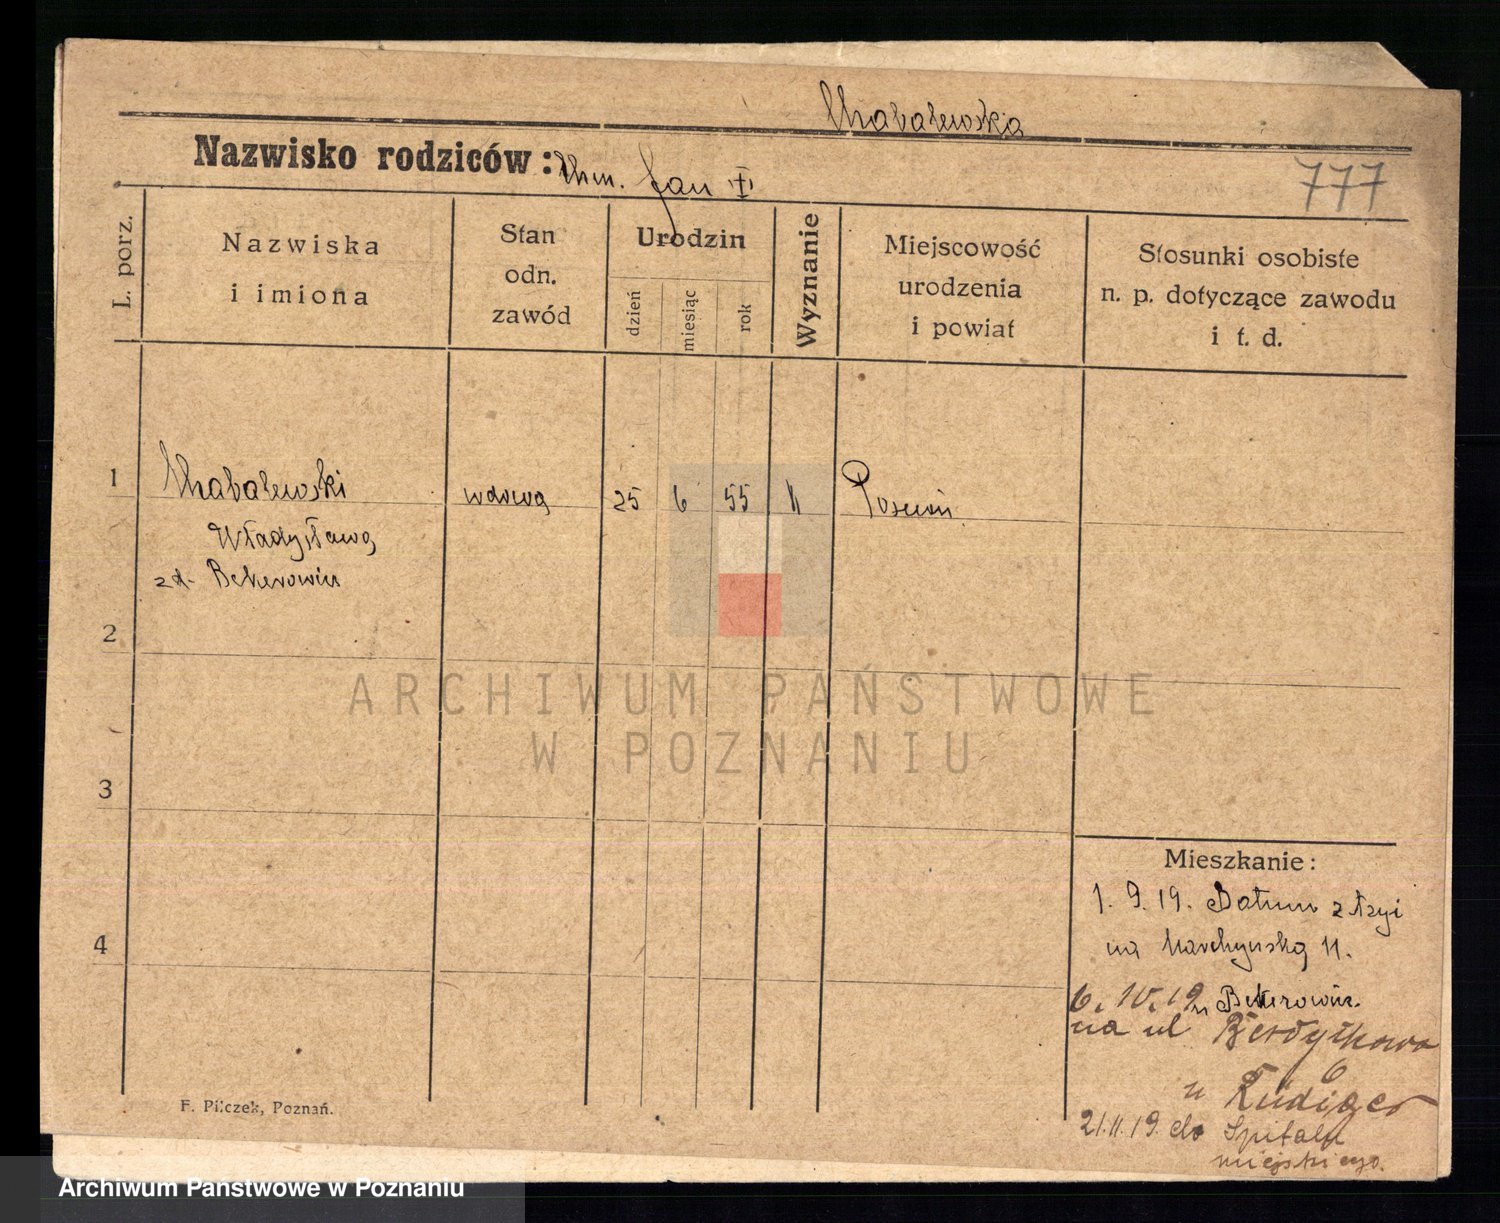 Chabalewska
Nazwisko rodziców: Chm. Jan
777
L. porz.
Nazwiska
i imiona
Stan
odn.
zawód
Urodzin
dzień
miesiąc
rok
Wyznanie
Miejscowość
urodzenia
i powiat
Stosunki osobiste
n. p. dotyczące zawodu
i t. d.
1
wdowa
25
6
55
"
Władysława
zd. Bekerowicz
2
ARCHIWUM PAŃSTWOWE
W POZNANIU
3
Mieszkanie:
1. 9. 19.
na 11.
4
6. IV. 19 u Bekerowicz
na ul
6
u Rüdiger
21. II. 19. do Szpitala
miejskiego.
F. Pilczek, Poznań.
Archiwum Państwowe w Poznaniu